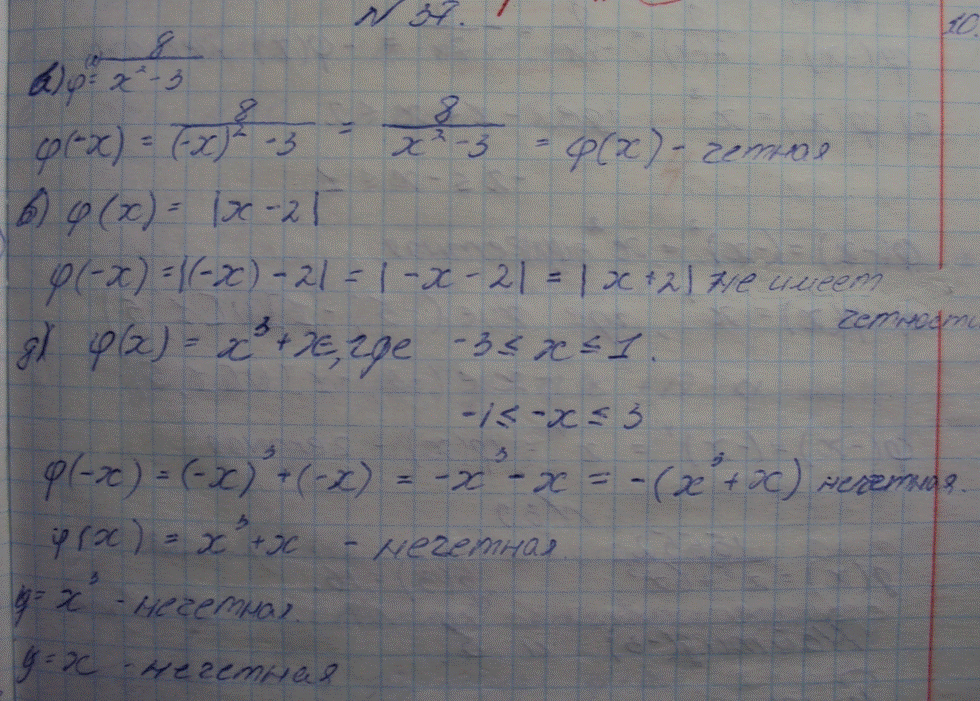 N 37.
10.
а) φ(x) = 8/(x² - 3)
φ(-x) = 8/((-x)² - 3) = 8/(x² - 3) = φ(x) - четная
б) φ(x) = |x - 2|
φ(-x) = |(-x) - 2| = |-x - 2| = |x + 2| не имеет
четности
д) φ(x) = x³ + x, где -3 ≤ x ≤ 1.
-1 ≤ -x ≤ 3
φ(-x) = (-x)³ + (-x) = -x³ - x = -(x³ + x) нечетная.
φ(x) = x³ + x - нечетная.
y = x³ - нечетная.
y = x - нечетная